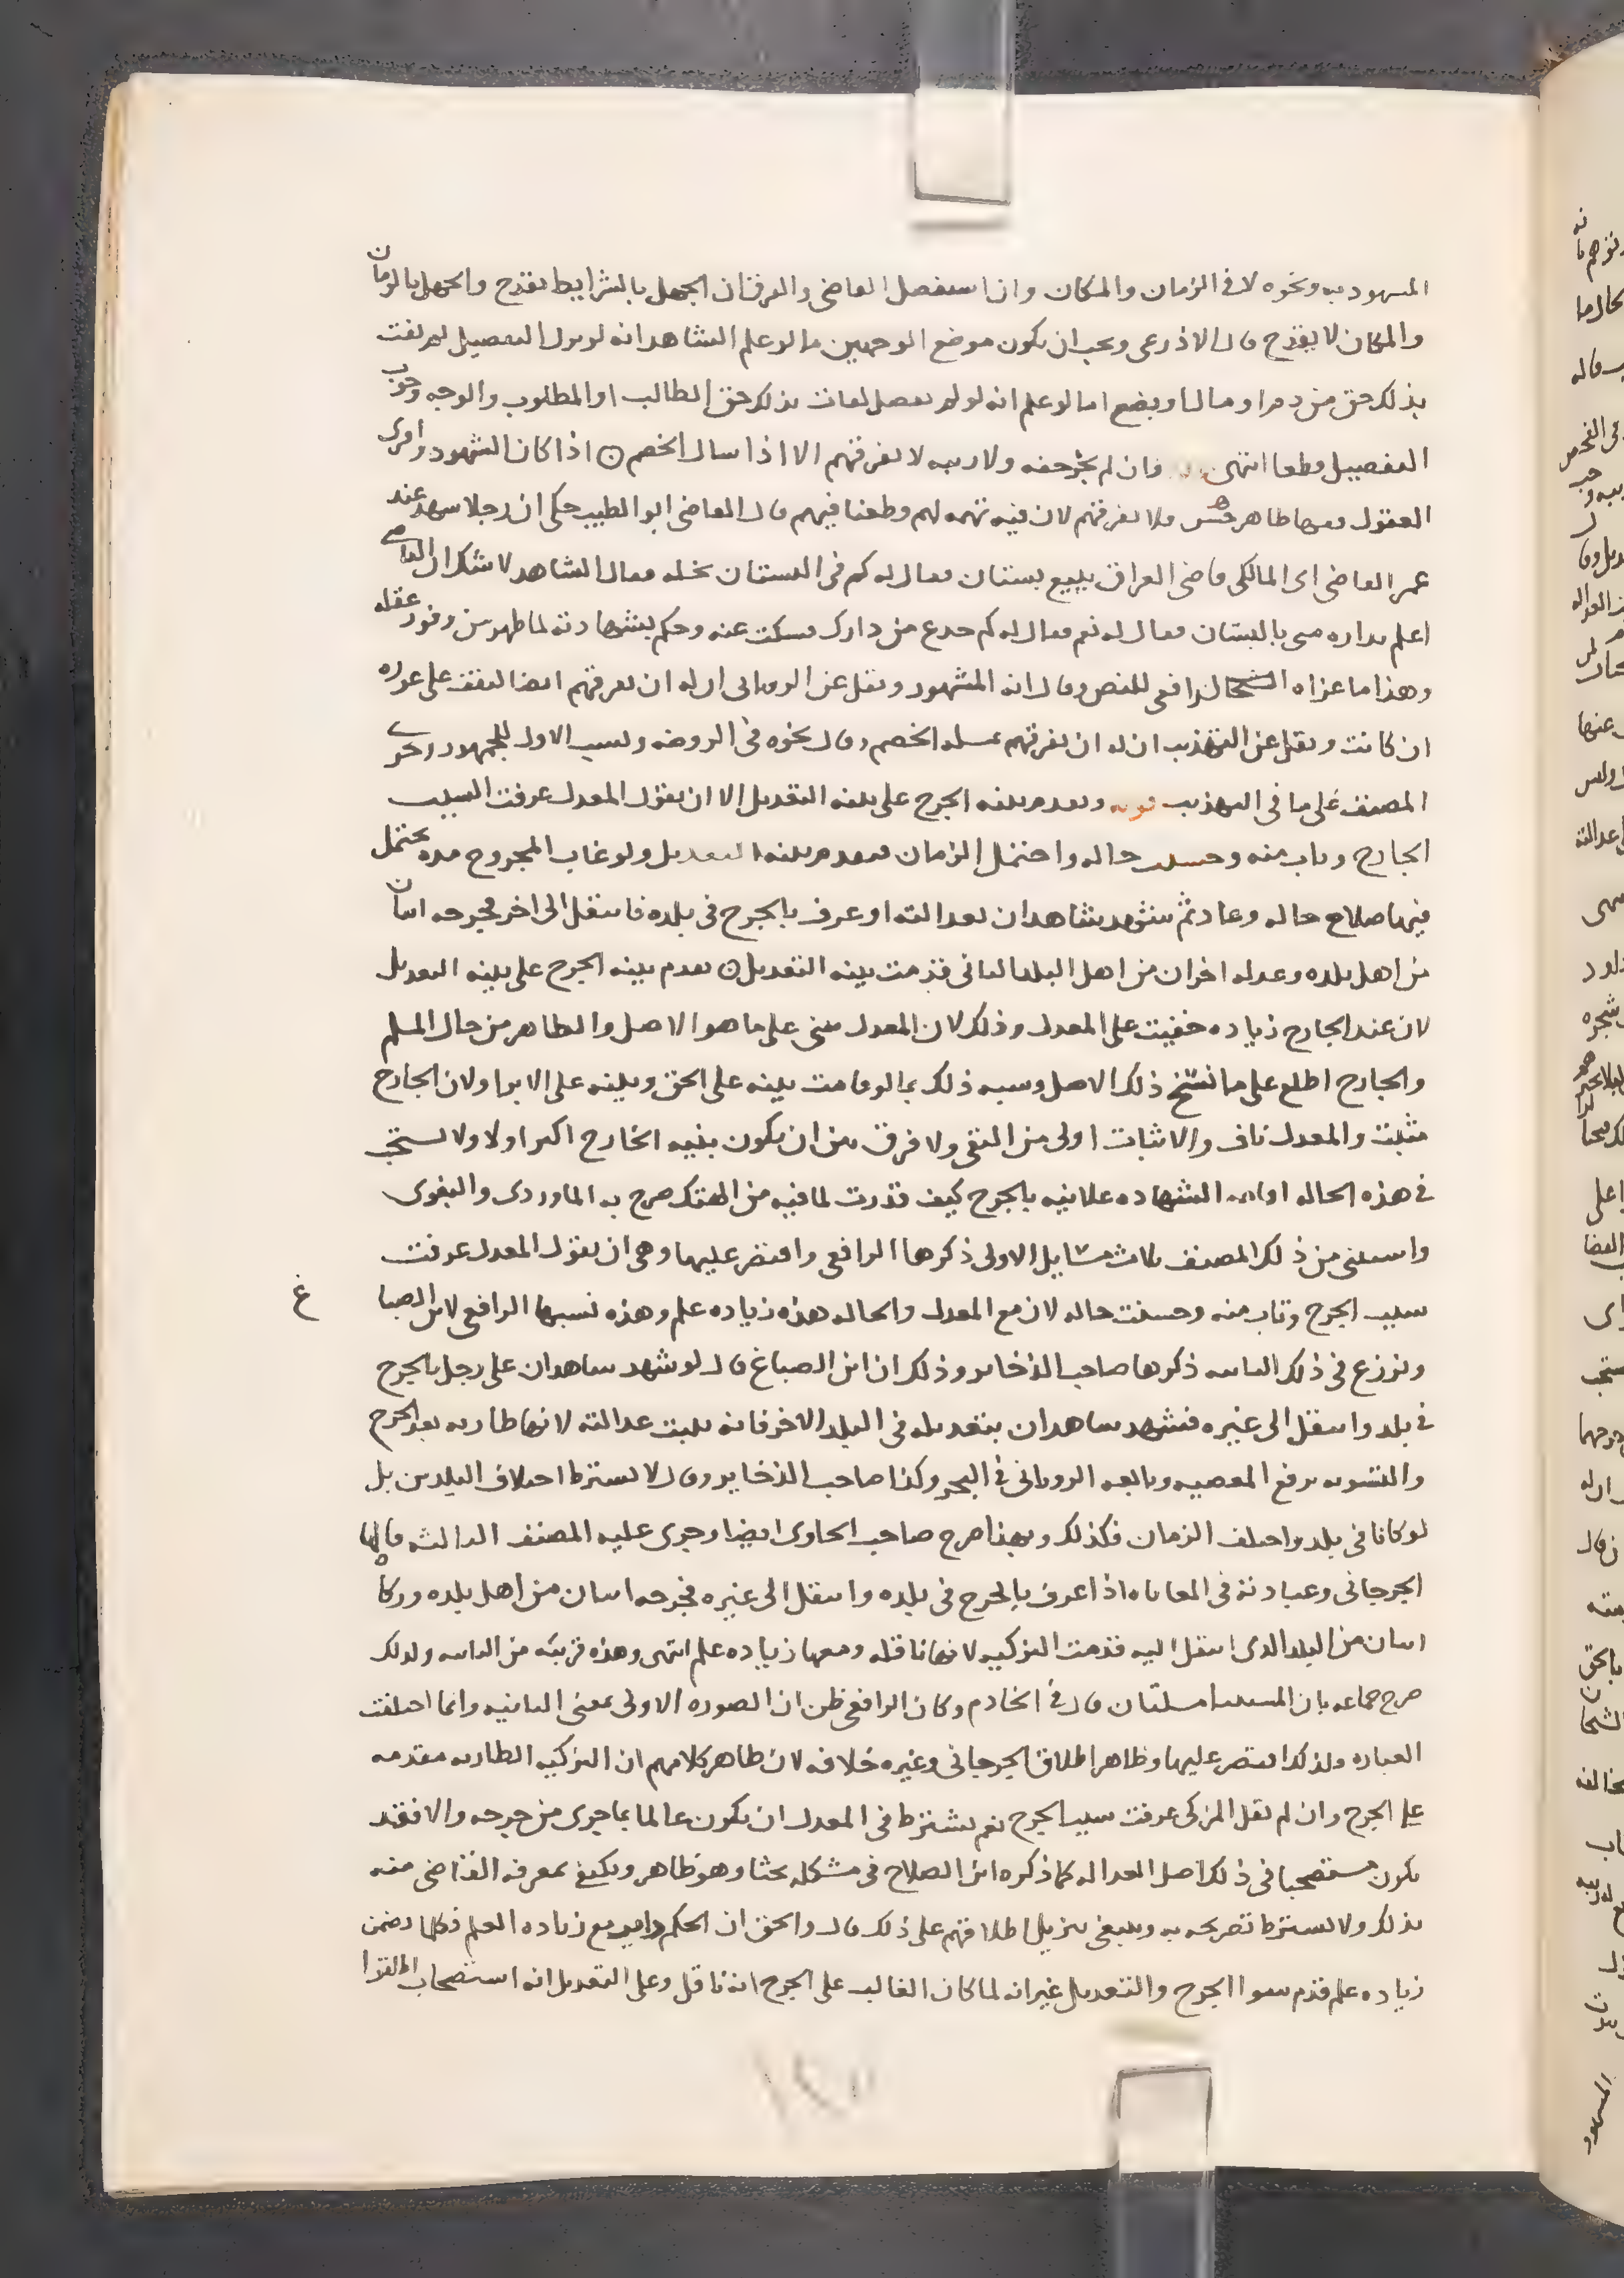 المشهود به ونحوه لا في الزمان والمكان وان استفصل القاضي والفرق ان الجهل بالشرايط يقدح والجهل بالزمان
والمكان لا يقدح قال الاذرعي ويجب ان يكون موضع الوجهين ما لو علم الشاهد انه لو ترك التفصيل لم يفت
بذلك حق من دم او مال او بضع اما لو علم انه لو لم يفصل لفات بذلك حق الطالب او المطلوب والوجه وجوب
التفصيل قطعا انتهى وان لم يخف ولا ريبه لا يفرقهم الا اذا سال الخصم ن اذا كان الشهود وافري
العقول فلا يفرقهم لان فيه تهمه لهم وطعنا فيهم قال القاضي ابو الطيب حكى ان رجلا شهد عند
عمر القاضي اي المالكي قاضي العراق ببيع بستان فقال له كم في البستان نخله فقال الشاهد لا شك ان القاضي
اعلم بداره مني بالبستان فقال له نعم فقال له كم جدع من دارك فسكت عنه وحكم بشهادته لما ظهر من وفور عقله
وهذا ما عزاه الرافعي للنص وقال انه المشهور ونقل عن الروياني ان له ان يفرقهم ايضا ليقف على عوره
ان كانت ونقل عن التهذيب ان له ان يفرقهم بمسله الخصم وقال نحوه في الروضه ونسب الاول للجمهور وجرى
المصنف على ما في التهذيب وتقدم بينه الجرح على بينه التعديل الا ان يقول المعدل عرفت السبب
الجارح وتاب منه وحسنت حاله واحتمل الزمان فتقدم بينه التعديل ولو غاب المجروح مده يحتمل
فيها صلاح حاله وعاد ثم شهد شاهدان بعدالته او عرف بالجرح في بلده فانتقل الى اخر فجرحه اثنان
من اهل بلده وعدله اخران من اهل البلد الثاني قدمت بينه التعديل ن تقدم بينه الجرح على بينه التعديل
لان عند الجارح زياده خفيت على المعدل وذلك لان المعدل بنى على ما هو الاصل والظاهر من حال المسلم
والجارح اطلع على ما نسخ ذلك الاصل وشبه ذلك بما لو قامت بينه على الحق وبينه على الابرا ولان الجارح
مثبت والمعدل ناف والاثبات اولى من النفي ولا فرق بين ان يكون بينه الجارح اكبر اولا ولا يستحب
في هذه الحاله الشهاده علانيه بالجرح كيف قدرت لما فيه من الهتك صرح به الماوردي والبغوي
واستثنى من ذلك المصنف ثلاث مسايل الاولى ذكرها الرافعي واقتصر عليها وهي ان يقول المعدل عرفت
سبب الجرح وتاب منه وحسنت حاله لان مع المعدل والحاله هذه زياده علم وهذه نسبها الرافعي لابن الصبا
غ
ونوزع في ذلك الثانيه ذكرها صاحب الذخاير وذلك ان ابن الصباغ قال لو شهد شاهدان على رجل بالجرح
في بلد وانتقل الى غيره فشهد شاهدان بتعديله في البلد الاخر فانه يثبت عدالته لانها طاريه بعد الجرح
والتوبه ترفع المعصيه وتابعه الروياني في البحر وكذا صاحب الذخاير وقال لا يشترط اختلاف البلدين بل
لو كانا في بلد واختلف الزمان فكذلك وبهذا صرح صاحب الحاوي ايضا وجرى عليه المصنف الثالثه قالها
الجرجاني وعبارته في المعاياه اذا عرف بالجرح في بلده وانتقل الى غيره فجرحه اثنان من اهل بلده وزكا
اثنان من البلد الذي انتقل اليه قدمت التزكيه لانها ناقله ومعها زياده علم انتهى وهذه قريبه من الثانيه ولذلك
صرح جماعه بان مسلتان قال في الخادم وكان الرافعي ظن ان الصوره الاولى بمعنى الثانيه وانما اختلفت
العباره ولذلك اقتصر عليها وظاهر اطلاق الجرجاني وغيره خلافه لان ظاهر كلامهم ان التزكيه الطاريه مقدمه
على الجرح وان لم يقل المزكي عرفت سبب الجرح نعم يشترط في المعدل ان يكون عالما بما جرى من جرحه والا فقد
يكون مستصحبا في ذلك اصل العداله كما ذكره ابن الصلاح في مشكله بحثا وهو ظاهر ويكفي بمعرفه القاضي منه
بذلك ولا يشترط تصريحه به وينبغي تنزيل اطلاقهم على ذلك قال والحق ان الحكم داير مع زياده العلم فكلما تضمن
زياده علم قدم سوا الجرح والتعديل غير انه لما كان الغالب على الجرح انه ناقل وعلى التعديل انه استصحاب